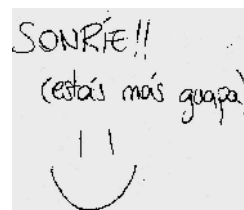 SONRÍE!!
(estás más guapa)